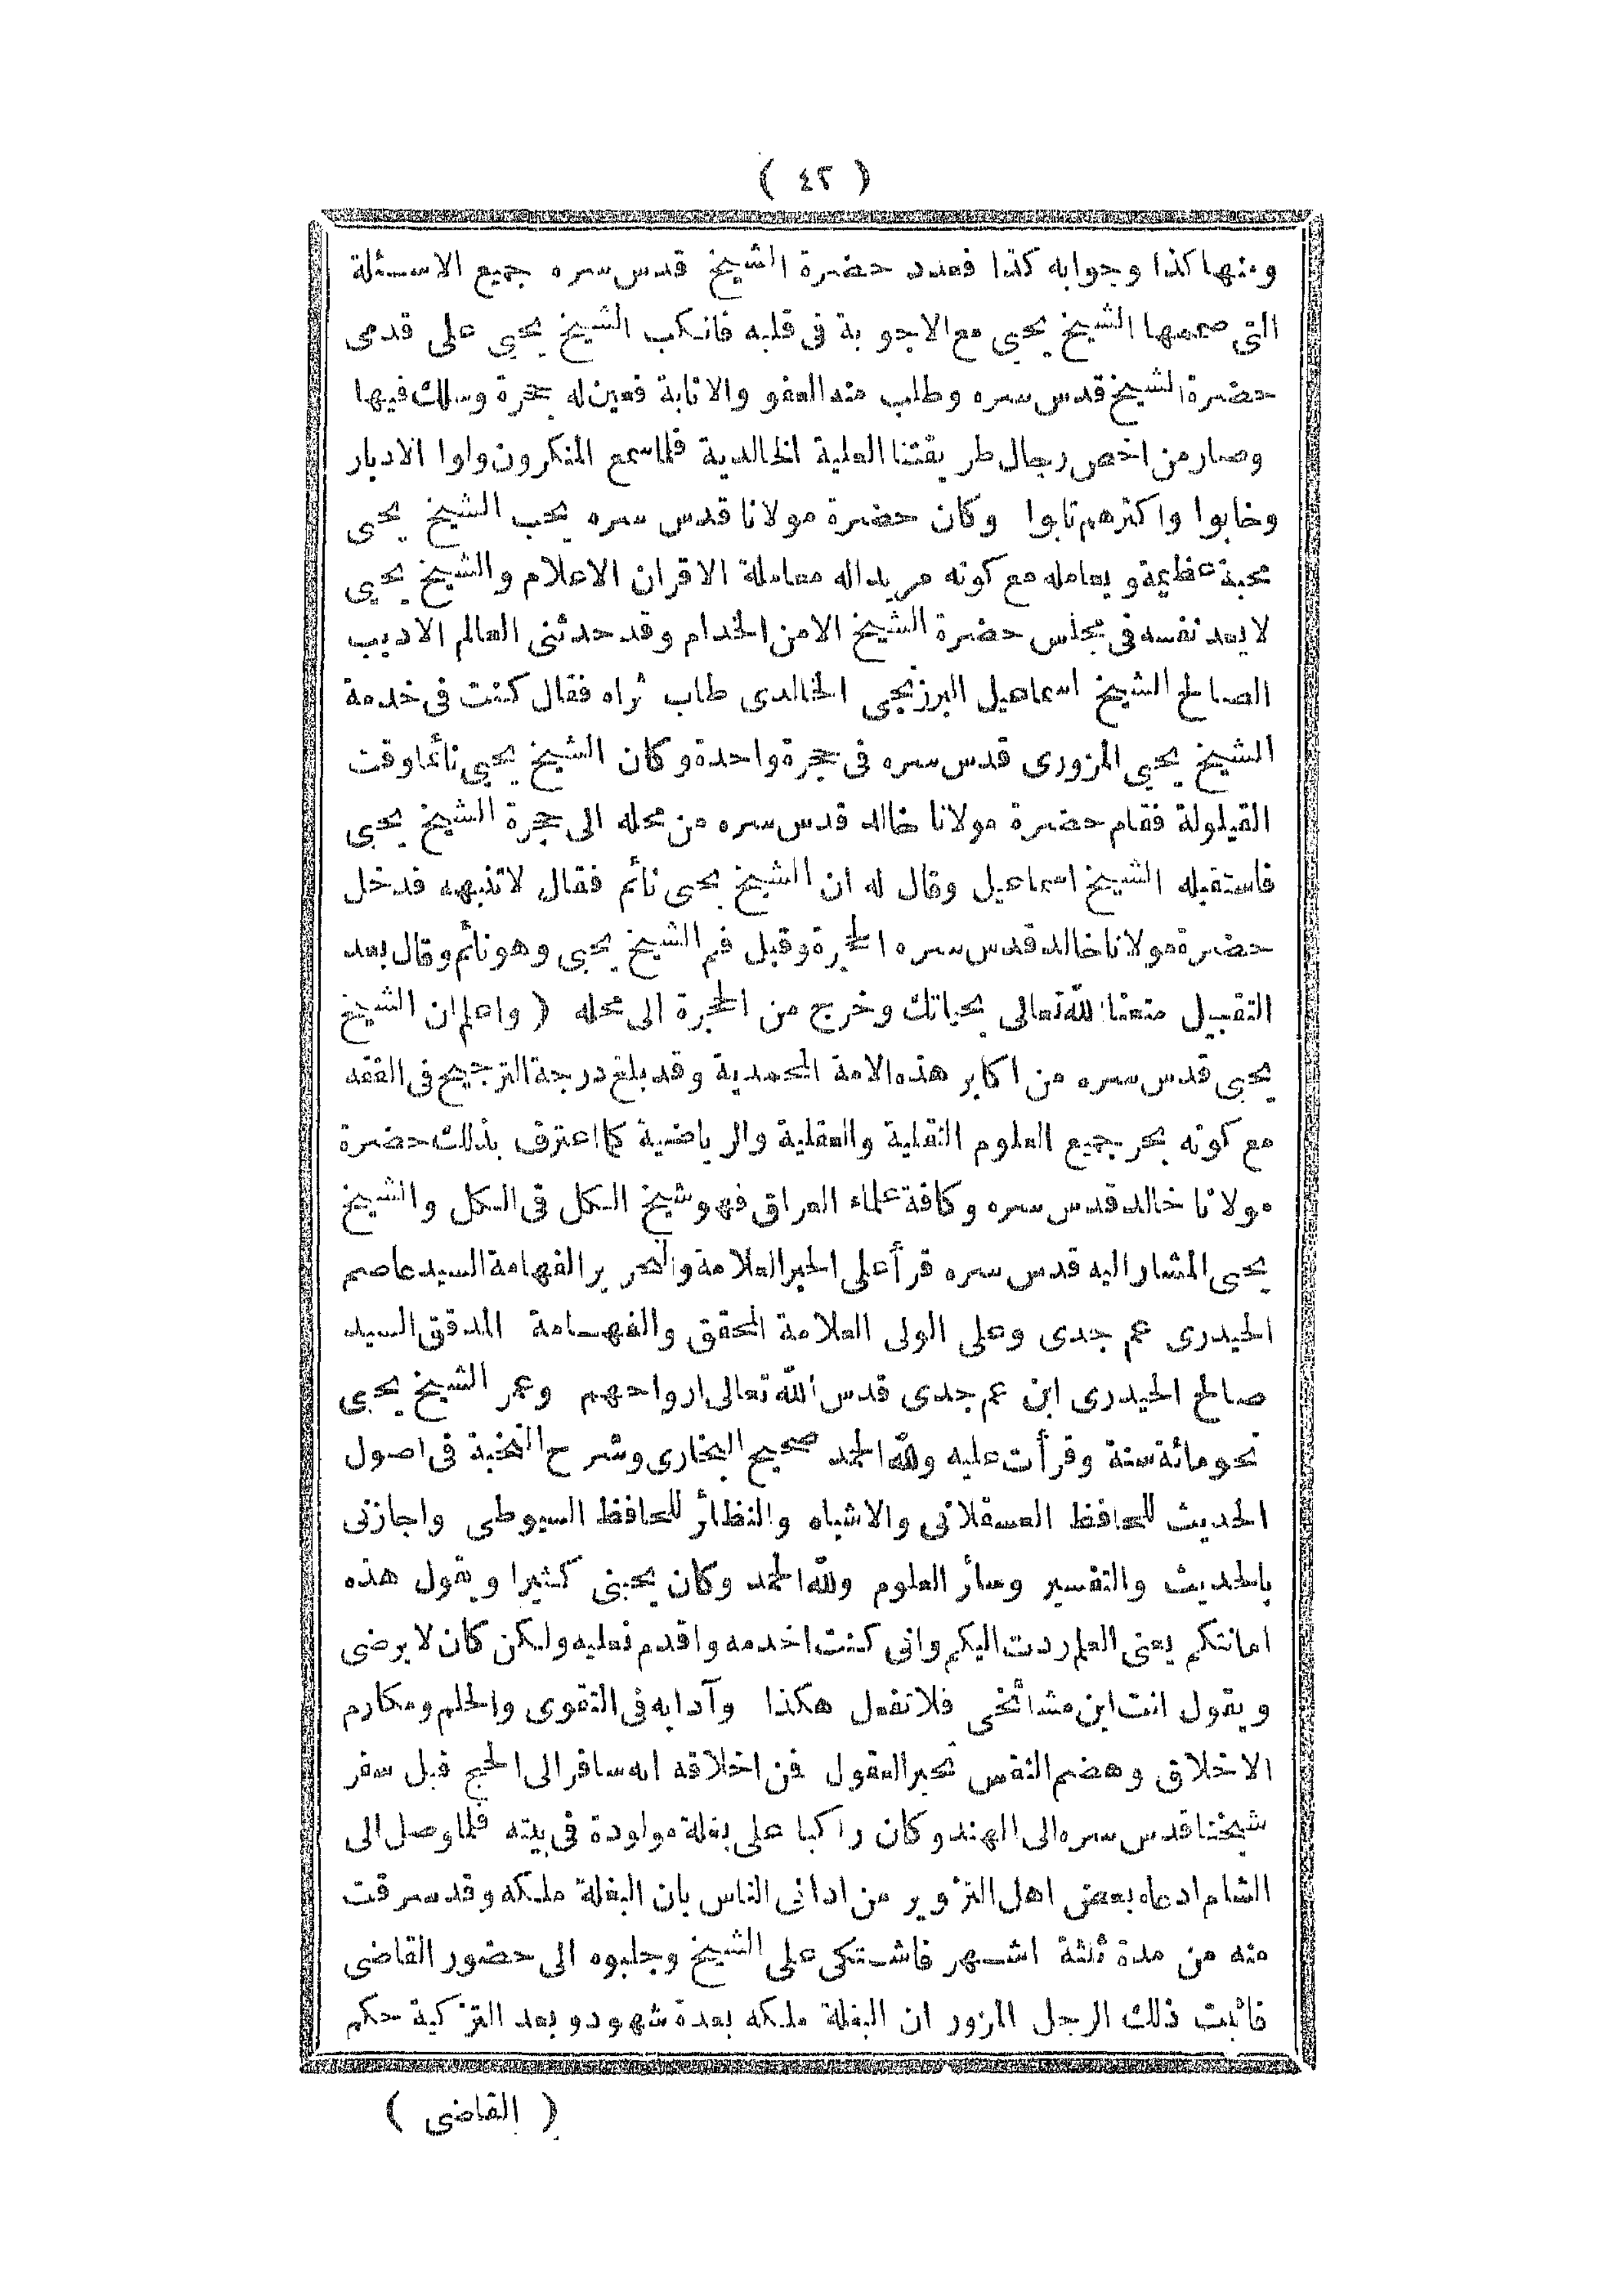 ( ٤٢ )
ومنها كذا وجوابه كذا فعدد حضرة الشيخ قدس سره جميع الاسئلة
التى صممها الشيخ يحيى مع الاجوبة فى قلبه فانكب الشيخ يحيى على قدمى
حضرة الشيخ قدس سره وطلب منه العفو والانابة فعين له حجرة وسلك فيها
وصار من اخص رجال طريقتنا العلية الخالدية فلما سمع المنكرون ولوا الادبار
وخابوا واكثرهم تابوا وكان حضرة مولانا قدس سره يحب الشيخ يحيى
محبة عظيمة ويعامله مع كونه مريدا له معاملة الاقران الاعلام والشيخ يحيى
لا يعد نفسه فى مجلس حضرة الشيخ الا من الخدام وقد حدثنى العالم الاديب
الصالح الشيخ اسماعيل البرزنجى الخالدى طاب ثراه فقال كنت فى خدمة
الشيخ يحيى المزورى قدس سره فى حجرة واحدة وكان الشيخ يحيى نائما وقت
القيلولة فقام حضرة مولانا خالد قدس سره من محله الى حجرة الشيخ يحيى
فاستقبله الشيخ اسماعيل وقال له ان الشيخ يحيى نائم فقال لا تنبهه فدخل
حضرة مولانا خالد قدس سره الحجرة وقبل فم الشيخ يحيى وهو نائم وقال بعد
التقبيل متعنا الله تعالى بحياتك وخرج من الحجرة الى محله ( واعلم ان الشيخ
يحيى قدس سره من اكابر هذه الامة المحمدية وقد بلغ درجة الترجيح فى الفقه
مع كونه بحر جميع العلوم النقلية والعقلية والرياضية كما اعترف بذلك حضرة
مولانا خالد قدس سره وكافة علماء العراق فهو شيخ الكل فى الكل والشيخ
يحيى المشار اليه قدس سره قرأ على الحبر العلامة والنحرير الفهامة السيد عاصم
الحيدرى عم جدى وعلى الولى العلامة المحقق والفهامة المدقق السيد
صالح الحيدرى ابن عم جدى قدس الله تعالى ارواحهم وعمر الشيخ يحيى
نحو مائة سنة وقرأت عليه ولله الحمد صحيح البخارى وشرح النخبة فى اصول
الحديث للحافظ العسقلانى والاشباه والنظائر للحافظ السيوطى واجازنى
بالحديث والتفسير وسائر العلوم ولله الحمد وكان يحبنى كثيرا ويقول هذه
امانتكم يعنى العلم ردت اليكم وانى كنت اخدمه واقدم نعليه ولكن كان لا يرضى
ويقول انت ابن مشائخى فلا تفعل هكذا وآدابه فى التقوى والحلم ومكارم
الاخلاق وهضم النفس تحير العقول فمن اخلاقه انه سافر الى الحج قبل سفر
شيخنا قدس سره الى الهند وكان راكبا على بغلة مولودة فى بيته فلما وصل الى
الشام ادعاه بعض اهل التزوير من ادانى الناس بان البغلة ملكه وقد سرقت
منه من مدة ثلثة اشهر فاشتكى على الشيخ وجلبوه الى حضور القاضى
فاثبت ذلك الرجل المزور ان البغلة ملكه بعدة شهود وبعد التزكية حكم
( القاضى )